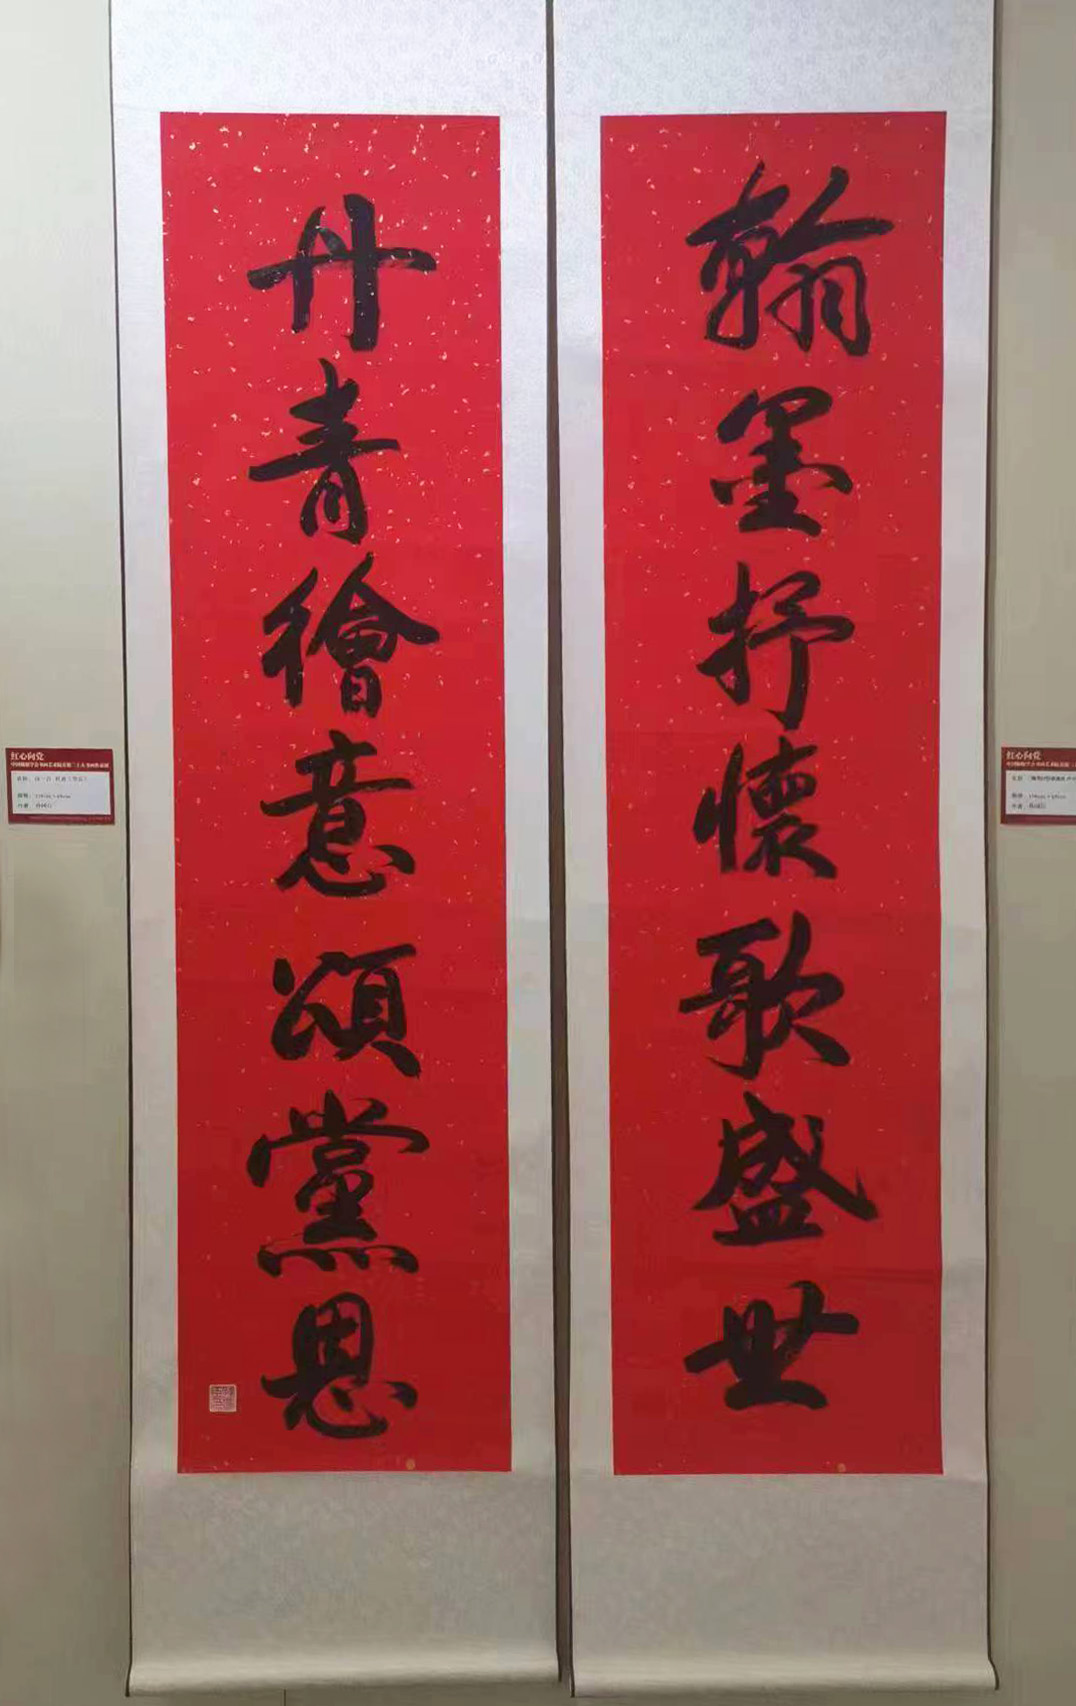 翰墨抒懷歌盛世
丹青繪意頌黨恩
红心向党
红心向党